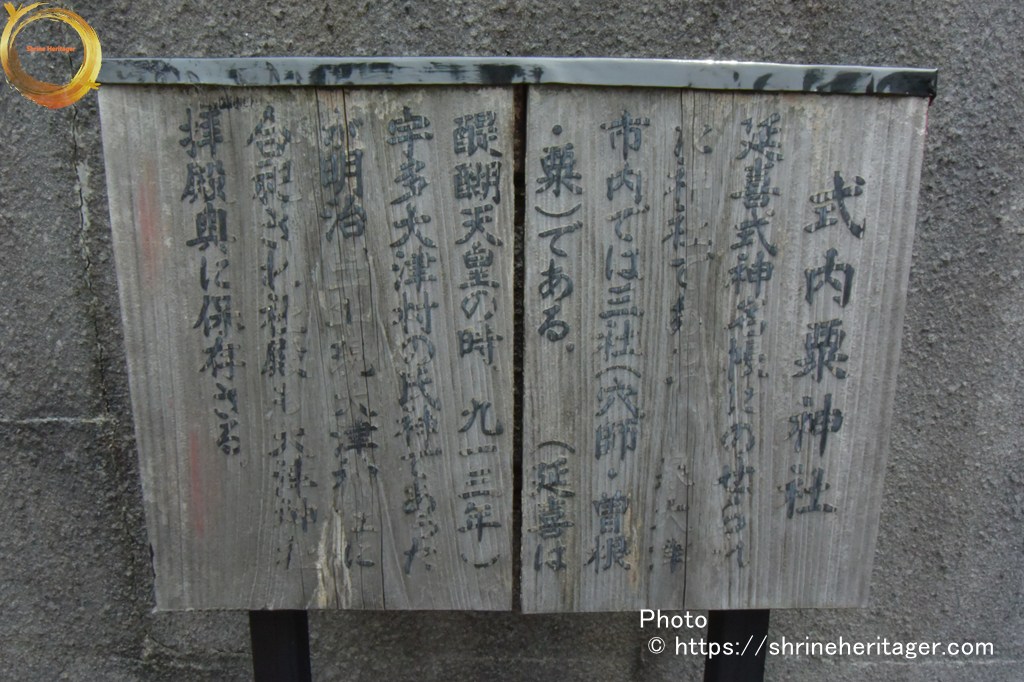 式内粟神社
延喜式神名帳にのせられ
た神社で
市内では三社(穴師・曽根
・粟)である。 (延喜は
醍醐天皇の時、九一三年)
宇多大津村の氏神であった
が明治 津神社に
合祀され 大津神社
拝殿奥に保存さる
Shrine Heritager
Photo
© https://shrineheritager.com